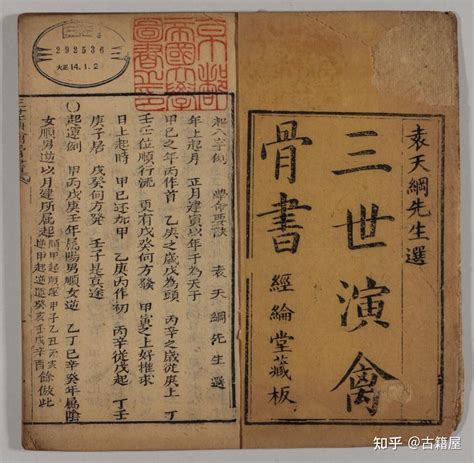 袁天綱先生選
三世演禽
骨書
經綸堂藏板
起八字例 袁天綱先生選
年上起月 正月建寅以年干為天干
甲己之年丙作首 乙庚之歲戊為頭 丙辛之歲從庚上 丁
壬壬位順行流 更有戊癸何方發 甲寅之上好推求
日上起時 甲己还加甲 乙庚丙作初 丙辛從戊起 丁壬
庚子居 戊癸何方發 壬子是真途
〇起運例 甲丙戊庚壬年屬陽男順女逆 乙丁己辛癸年屬陰
女順男逆以月建所属起 餘倣此
京都
帝國大學
圖書之印
292536
大正14.1.2
知乎 @古籍屋